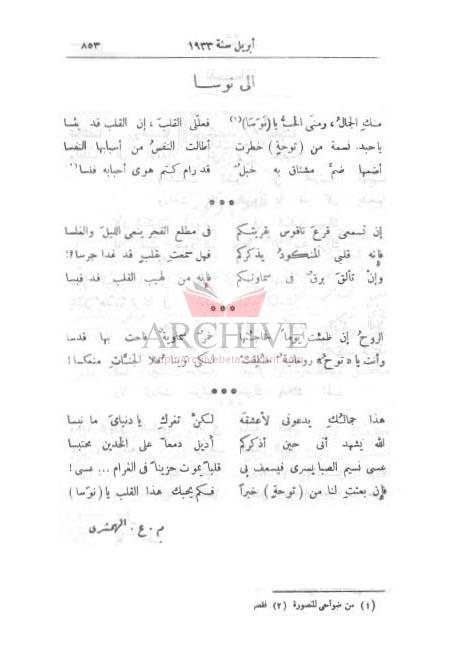 أبريل سنة ١٩٣٣ ٨٥٣
الى نوسا
منك الجمال، ومني الحب يا (نوسا) (١) فعلّلي القلب، إن القلب قد يئسا
ياحبذا نسمة من (توحة) خطرت أطالت النفس من أسبابها النفسا
أضمها ضمَّ مشتاق به خبل قد رام كتم هوى أحبابه فنسا
***
إن تسمعى قرع ناقوس بقريتكم فى مطلع الفجر ينعى الليل والغلسا
فإنه قلبي المنكود يذكركم فهل سمعتِ بقلبٍ قد غدا جرسا؟!
وإن تألق برق فى سماوتكم فإنه من لهيب القلب قد قبسا
***
ARCHIVE
الروح إن ظمئت يوماً
وأنت يا «توح» روحانية
***
هذا جمالك يدعونى لأعشقه لكنَّ ثغرك يا دنياى ما نبسا
الله يشهد أنى حين أذكركم أذيل دمعاً على الخدين محتبسا
عسى نسيم الصبا يسرى فيسعف بى قلباً يموت حزيناً فى الغرام ... عسى!
فإن بعثت لنا من (توحة) خبراً فكم يحبك هذا القلب يا (نوسا)
م . ع . الهمشرى
(١) من ضواحى المنصورة (٢)